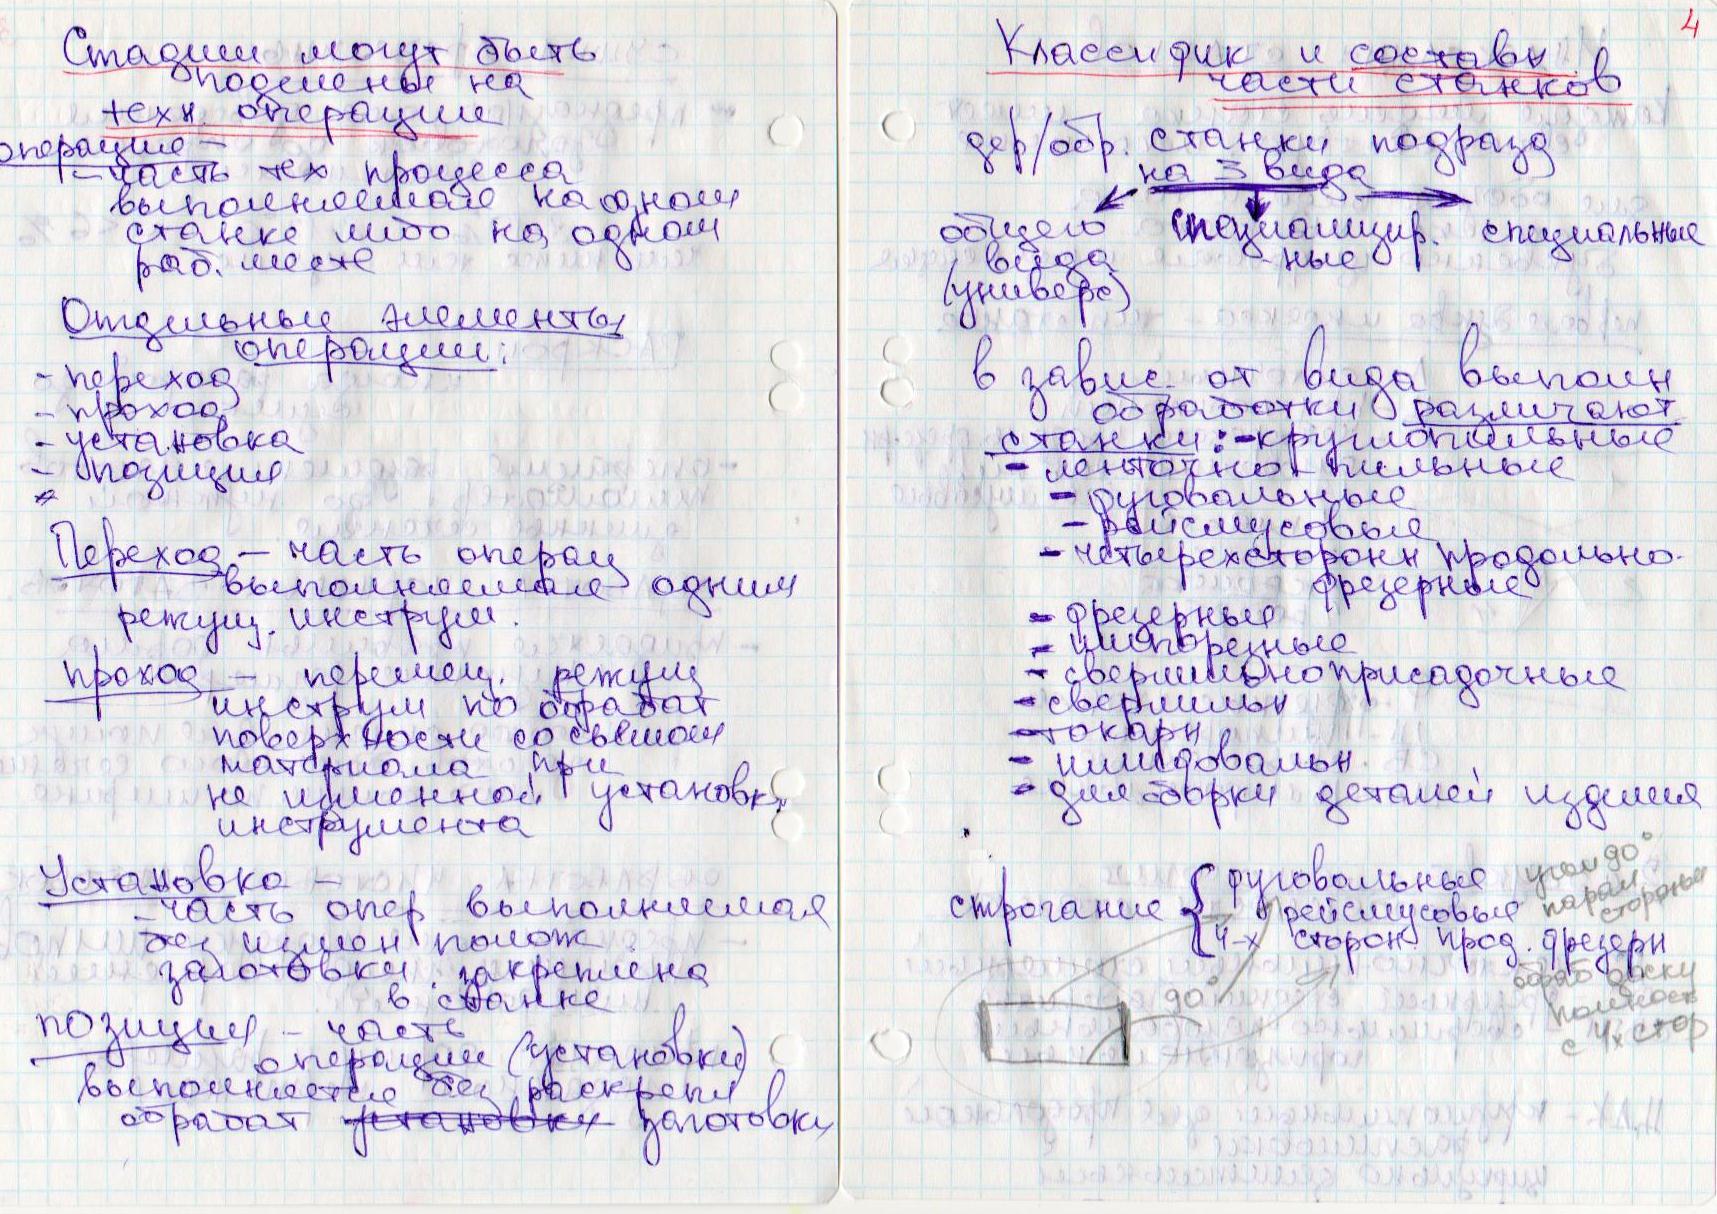 Стадии могут быть
поделены на
техн. операции
операция –
– часть тех процесса
выполняемая на одном
станке либо на одном
раб. месте
Отдельные элементы
операции:
- переход
- проход
- установка
- позиция
Переход – часть операц
выполняемая одним
режущ. инструм.
проход – перемещ. режущ
инструм по обрабат
поверхности со съёмом
материала при
не изменной установк
инструмента
Установка –
– часть опер выполняемая
без измен полож.
заготовки закреплена
в станке
позиция – часть
операции (установки)
выполняется без раскрепл
обрабат установки заготовки
4
Классифик и составн
части станков
дер/обр. станки подразд
на 3 вида
общего специализир. специальные
вида ные
(универс)
в завис. от вида выполн
обработки различают
станки: - круглопильные
- ленточно пильные
- фуговальные
- рейсмусовые
- четырехсторонн продольно-
фрезерные
- фрезерные
- шипорезные
- сверлильно присадочные
- сверлильн
- токарн
- шлифовальн.
- для сборки деталей изделия
строгание { фуговальные угол 90°
рейсмусовые парал стороны
4-х сторон. прод. фрезерн
обраб доски
полност
с 4х стор
90°